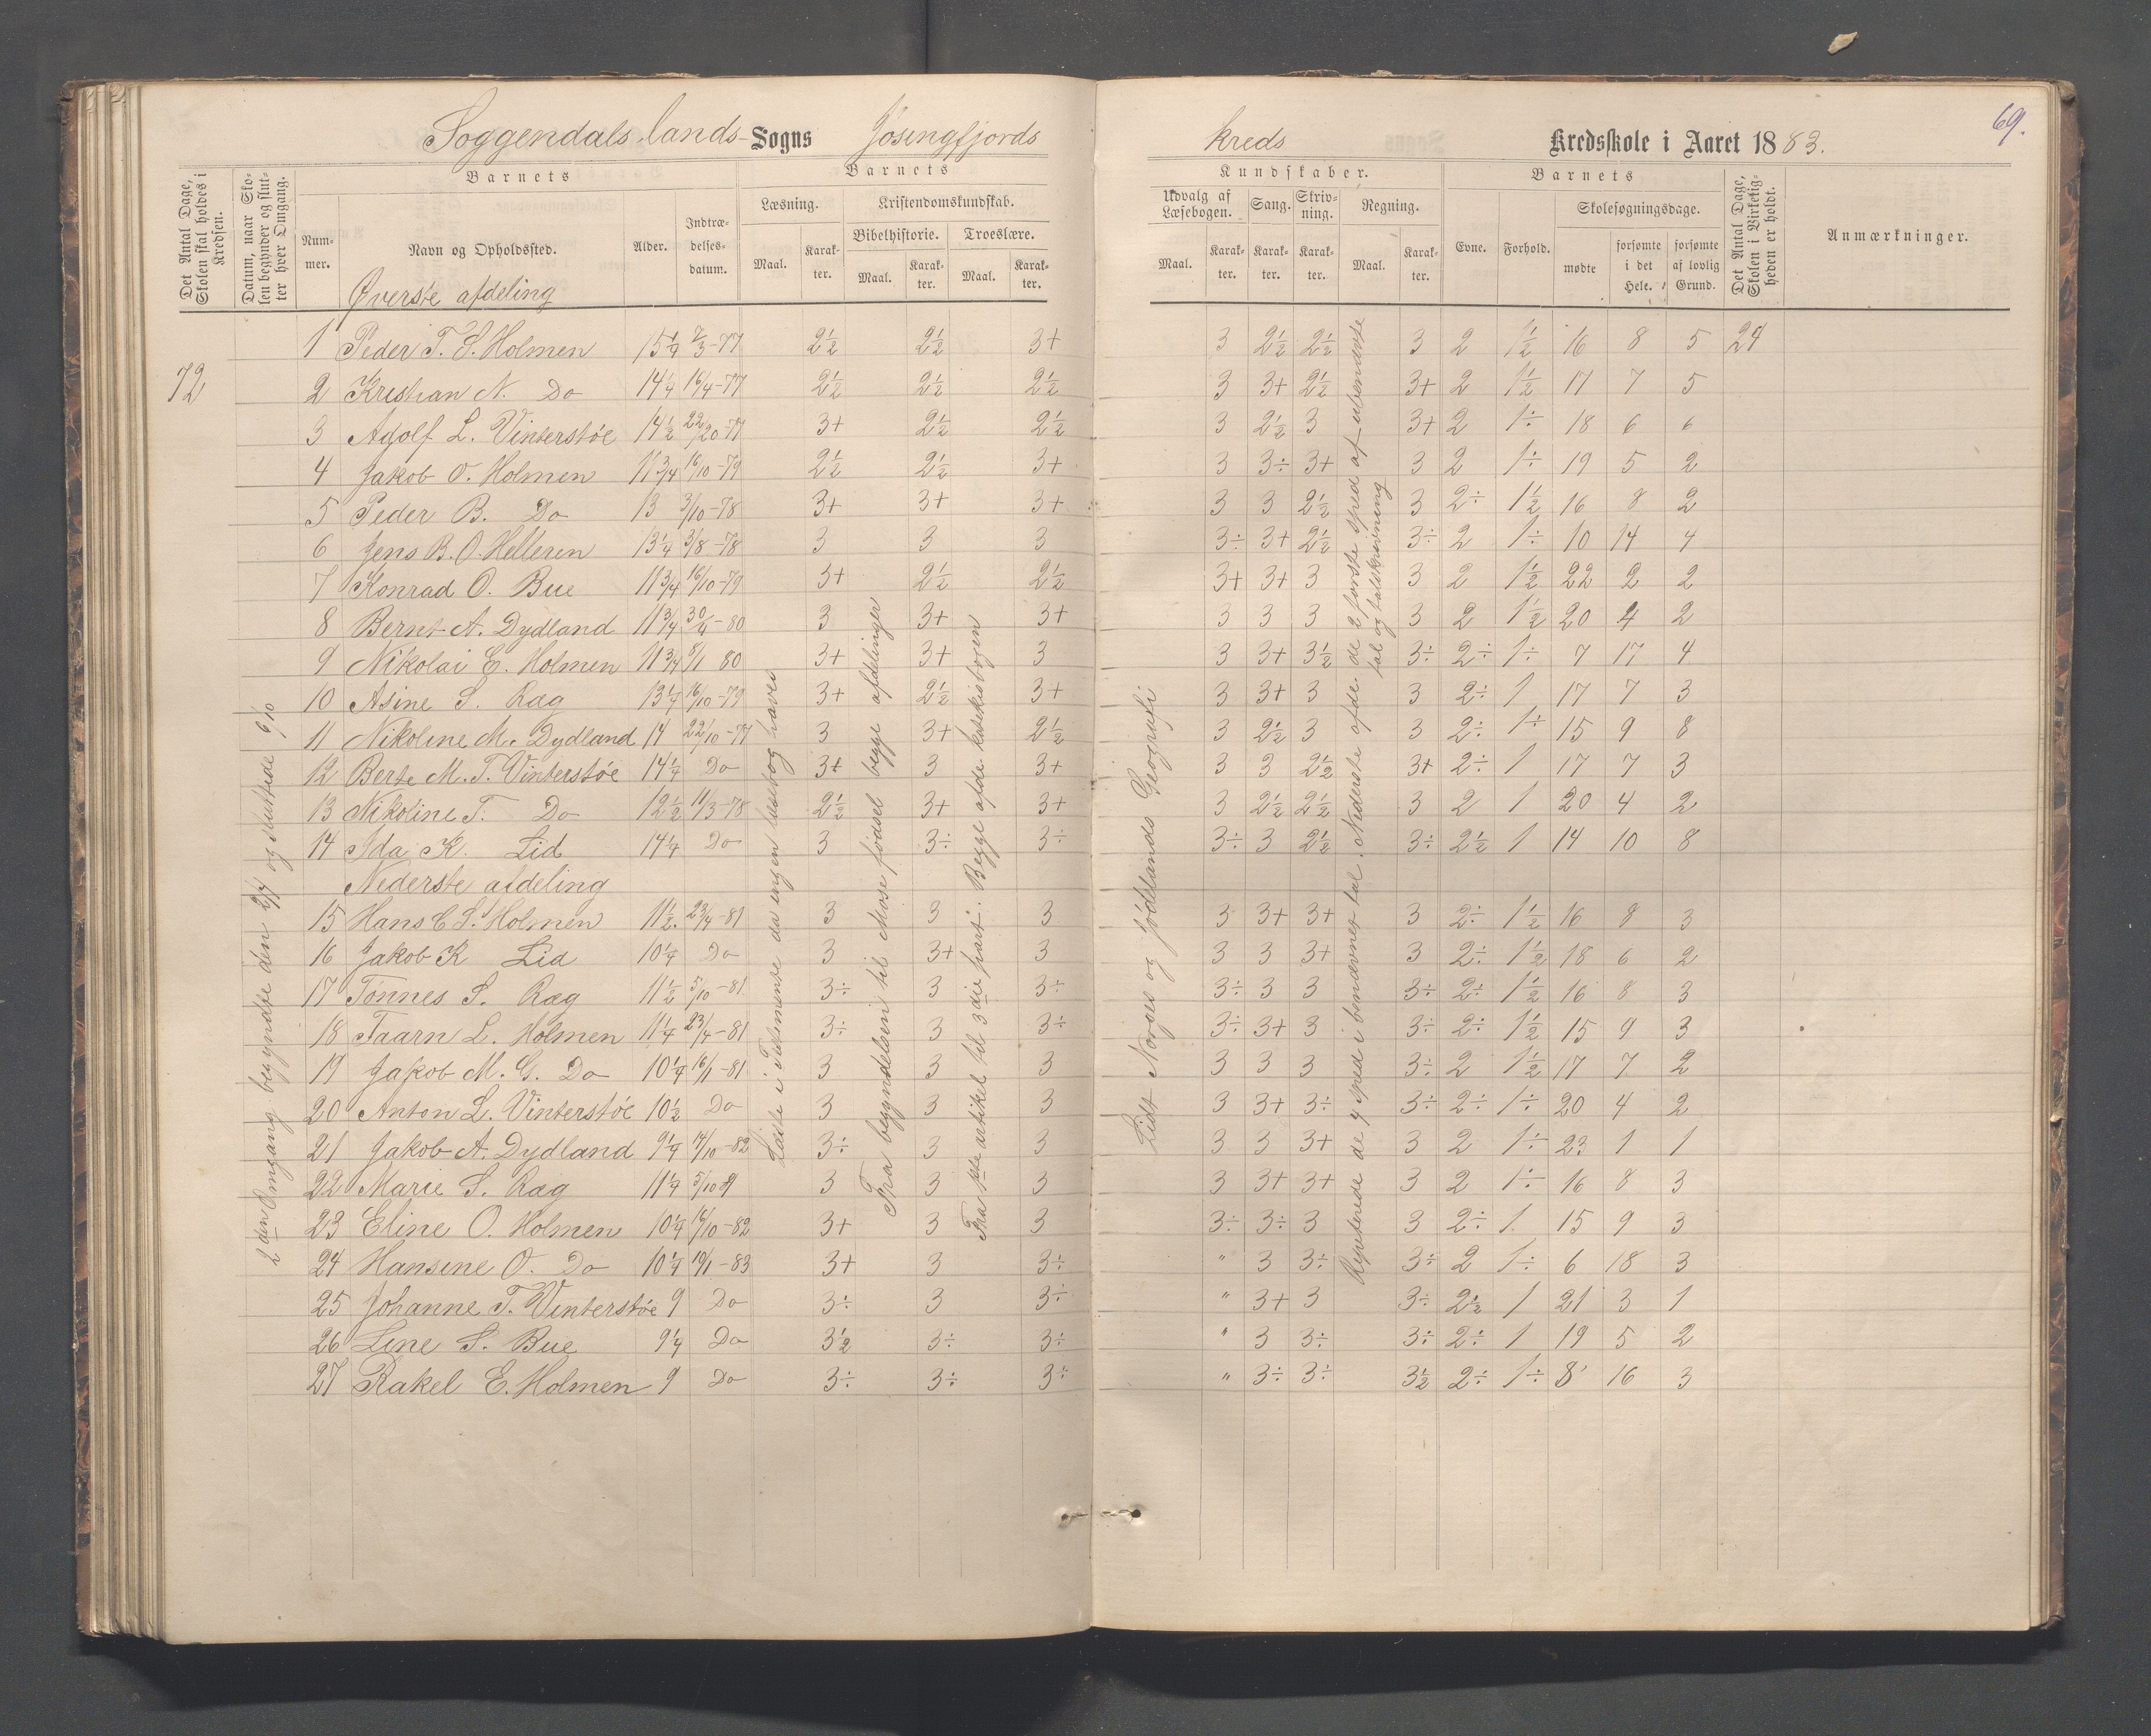 69.
Soggendals lands- Sogns Jösingfjords kreds Kredsskole i Aaret 1883.
Det Antal Dage, Skolen skal holdes i Kredsen.
Datum, naar Skolen begynder og slutter hver Omgang.
Barnets
Nummer.
Navn og Opholdssted.
Alder.
Indtrædelsesdatum.
Barnets
Læsning.
Maal.
Karakter.
Kristendomskundskab.
Bibelhistorie.
Maal.
Karakter.
Troeslære.
Maal.
Karakter.
Kundskaber.
Udvalg af Læsebogen.
Maal.
Karakter.
Sang.
Karakter.
Skrivning.
Karakter.
Regning.
Maal.
Karakter.
Barnets
Evne.
Forhold.
Skolesøgningsdage.
mødte
forsømte i det Hele.
forsømte af lovlig Grund.
Det Antal Dage, Skolen i Virkeligheden er holdt.
Anmærkninger.
Øverste afdeling
72
1 Peder T. S. Holmen 15 1/4 7/3-77 2 1/2 2 1/2 3+ 3 2 1/2 2 1/2 3 2 1 1/2 16 8 5 24
2 Kristian N. Do 14 1/4 16/4-77 2 1/2 2 1/2 2 1/2 3 3+ 2 1/2 3+ 2 1 1/2 17 7 5
3 Adolf L. Vinterstöe 14 1/2 22/20-77 3+ 2 1/2 2 1/2 3 2 1/2 3 3+ 2 1÷ 18 6 6
4 Jakob O. Holmen 11 3/4 16/10-79 2 1/2 2 1/2 3+ 3 3÷ 3+ 3 2 1÷ 19 5 2
5 Peder B. Do 13 3/10-78 3+ 3+ 3+ 3 3 2 1/2 3 2÷ 1 1/2 16 8 2
6 Jens B. O. Helleren 13 1/4 3/8-78 3 3 3 3÷ 3+ 2 1/2 3÷ 2 1÷ 10 14 4
7 Konrad O. Bue 11 3/4 16/10-79 3+ 2 1/2 2 1/2 3+ 3+ 3 3 2 1 1/2 22 2 2
8 Bernt A. Dydland 11 3/4 30/4-80 3 3+ 3+ 3 3 3 3 2 1 1/2 20 4 2
9 Nikolai E. Holmen 11 3/4 8/1 80 3+ 3+ 3 3 3+ 3 1/2 3÷ 2÷ 1÷ 7 17 4
10 Asine S. Ræg 13 1/4 16/10-79 3+ 2 1/2 3+ 3 3+ 3 3 2÷ 1 17 7 3
11 Nikoline M. Dydland 14 22/10-77 3 3+ 2 1/2 3 2 1/2 3 3 2÷ 1÷ 15 9 8
12 Berte M. T. Vinterstöe 14 1/4 Do 3+ 3 3+ 3 3 2 1/2 3+ 2÷ 1 17 7 3
13 Nikoline T. Do 12 1/2 11/3-78 2 1/2 3+ 3+ 3 2 1/2 2 1/2 3 2 1 20 4 2
14 Ida K. Lid 14 1/4 Do 3 3÷ 3÷ 3÷ 3 2 1/2 3÷ 2 1/2 1 14 10 8
Nederste afdeling
15 Hans C S. Holmen 11 1/2 23/4-81 3 3 3 3 3+ 3+ 3 2÷ 1 1/2 16 8 3
16 Jakob K Lid 10 1/4 Do 3 3+ 3 3 3 3+ 3 2÷ 1 1/2 18 6 2
17 Tönnes S. Ræg 11 1/2 5/10-81 3÷ 3 3÷ 3÷ 3 3 3÷ 2÷ 1 1/2 16 8 3
18 Taarn L. Holmen 11 1/4 23/4-81 3÷ 3 3÷ 3÷ 3+ 3 3÷ 2÷ 1 1/2 15 9 3
19 Jakob M. G. Do 10 1/4 16/1-81 3 3 3 3 3 3 3÷ 2 1 1/2 17 7 2
20 Anton L. Vinterstöe 10 1/2 Do 3 3 3 3 3+ 3÷ 3÷ 2÷ 1÷ 20 4 2
21 Jakob A. Dydland 9 1/4 14/10-82 3÷ 3 3 3 3 3+ 3 2 1÷ 23 1 1
22 Marie S. Ræg 11 1/4 5/10 3 3 3 3 3+ 3+ 3 2 1÷ 16 8 3
23 Eline O. Holmen 10 1/4 16/10-82 3+ 3 3 3÷ 3÷ 3 3 2÷ 1 15 9 3
24 Hansine O. Do 10 1/4 10/1-83 3+ 3 3÷ " 3 3÷ 3÷ 2 1÷ 6 18 3
25 Johanne T. Vinterstöe 9 Do 3÷ 3 3÷ " 3+ 3 3÷ 2 1/2 1 21 3 1
26 Line S. Bue 9 1/4 Do 3 1/2 3÷ 3÷ " 3 3÷ 3÷ 2÷ 1 19 5 2
27 Rakel E. Holmen 9 Do 3÷ 3÷ 3÷ " 3÷ 3÷ 3 1/2 2÷ 1÷ 8 16 3
2den Omgang begyndte den 2/7 og sluttede 6/10
Læste i Testamente da ingen læsebog haves
Fra begyndelsen til Mose fødsel begge afdelinger
Fra 1ste artikel til 3die part. Begge afde. katekisbogen
Lidt Norges og Jödelands Geografi
Repeterede de 4 sped i benævnet tal. Nederste afde. de 2 første sped af ubenævnte
tal og talskrivning